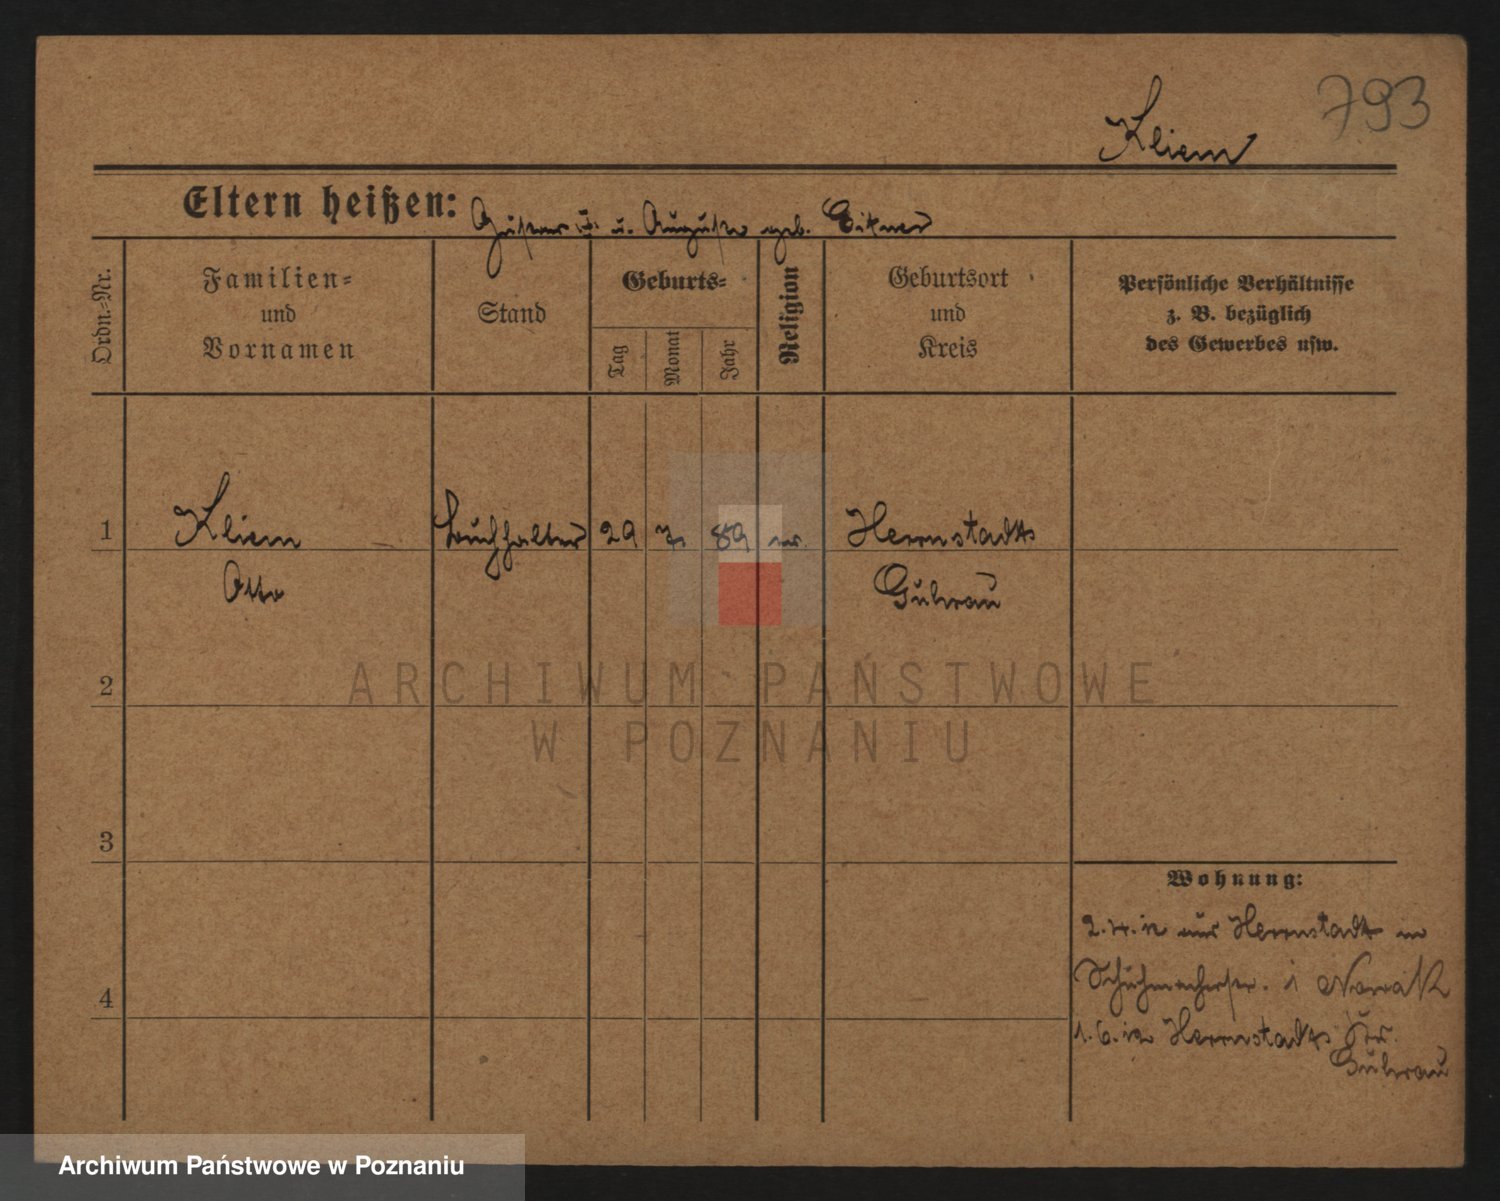 793
Kliem
Eltern heißen: Gustav u. Auguste geb. Eitner
Ordn.=Nr.
Familien=
und
Vornamen
Stand
Geburts=
Tag
Monat
Jahr
Religion
Geburtsort
und
Kreis
Persönliche Verhältnisse
z. B. bezüglich
des Gewerbes usw.
1
Kliem
Otto
Buchhalter
29
7.
89
ev.
Herrnstadt
Guhrau
2
3
4
Wohnung:
2.4.12 aus Herrnstadt
Schuhmacherstr. Nowak
1.6.12 Herrnstadt Krs.
Guhrau
ARCHIWUM PAŃSTWOWE
W POZNANIU
Archiwum Państwowe w Poznaniu